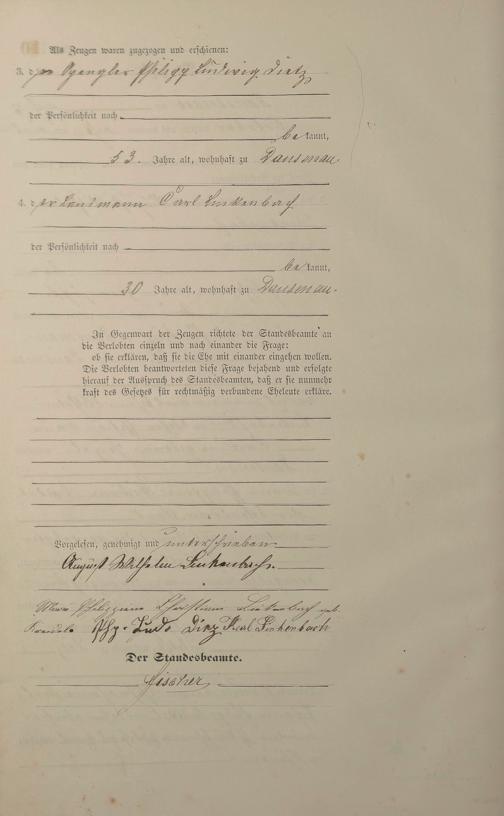 Als Zeugen waren zugezogen und erschienen:
3. der Spengler Philipp Ludwig Dietz
der Persönlichkeit nach
bekannt,
53 Jahre alt, wohnhaft zu Dausenau.
4. der Landmann Carl Linkenbach
der Persönlichkeit nach
bekannt,
30 Jahre alt, wohnhaft zu Dausenau.
In Gegenwart der Zeugen richtete der Standesbeamte an
die Verlobten einzeln und nach einander die Frage:
ob sie erklären, daß sie die Ehe mit einander eingehen wollen.
Die Verlobten beantworteten diese Frage bejahend und erfolgte
hierauf der Ausspruch des Standesbeamten, daß er sie nunmehr
kraft des Gesetzes für rechtmäßig verbundene Eheleute erkläre.
Vorgelesen, genehmigt und unterschrieben
August Wilhelm Linkenbach.
Philippine Linkenbach geb.
Phil. Ludw. Dietz Karl Linkenbach
Der Standesbeamte.